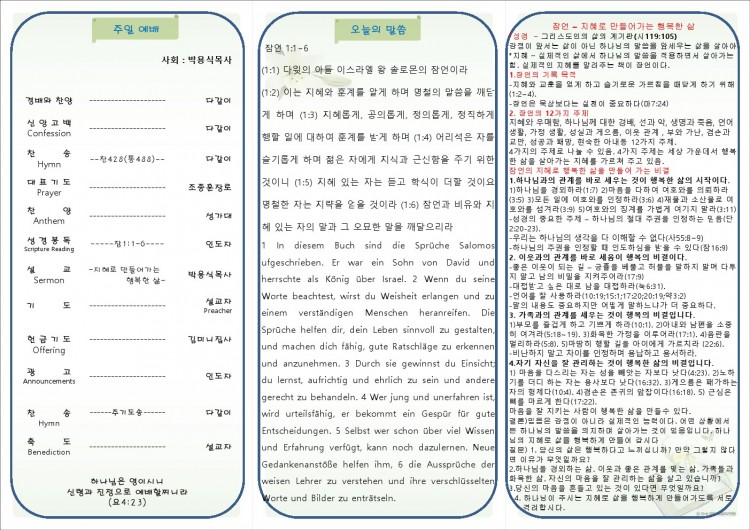 주일 예배
사회 : 박용식목사
경배와 찬양 ------------------ 다같이
신 앙 고 백 ------------------ 다같이
Confession
찬 송 --찬428(통488)-- 다같이
Hymn
대 표 기 도 ------------------ 조종훈장로
Prayer
찬 양 ------------------ 성가대
Anthem
성 경 봉 독 -----잠1:1-6---- 인도자
Scripture Reading
설 교 -지혜로 만들어가는 박용식목사
Sermon 행복한 삶-
기 도 ------------------ 설교자
Preacher
헌 금 기 도 ------------------ 김미니집사
Offering
광 고 ------------------ 인도자
Announcements
찬 송 ------주기도송------ 다같이
Hymn
축 도 ------------------ 설교자
Benediction
하나님은 영이시니
신령과 진정으로 예배할찌니라
(요4:23)
오늘의 말씀
잠언 1:1-6
(1:1) 다윗의 아들 이스라엘 왕 솔로몬의 잠언이라
(1:2) 이는 지혜와 훈계를 알게 하며 명철의 말씀을 깨닫
게 하며 (1:3) 지혜롭게, 공의롭게, 정의롭게, 정직하게
행할 일에 대하여 훈계를 받게 하며 (1:4) 어리석은 자를
슬기롭게 하며 젊은 자에게 지식과 근신함을 주기 위한
것이니 (1:5) 지혜 있는 자는 듣고 학식이 더할 것이요
명철한 자는 지략을 얻을 것이라 (1:6) 잠언과 비유와 지
혜 있는 자의 말과 그 오묘한 말을 깨달으리라
1 In diesem Buch sind die Sprüche Salomos
ufgeschrieben. Er war ein Sohn von David und
herrschte als König über Israel. 2 Wenn du seine
Worte beachtest, wirst du Weisheit erlangen und zu
einem verständigen Menschen heranreifen. Die
Sprüche helfen dir, dein Leben sinnvoll zu gestalten,
und machen dich fähig, gute Ratschläge zu erkennen
und anzunehmen. 3 Durch sie gewinnst du Einsicht;
du lernst, aufrichtig und ehrlich zu sein und andere
gerecht zu behandeln. 4 Wer jung und unerfahren ist,
wird urteilsfähig, er bekommt ein Gespür für gute
Entscheidungen. 5 Selbst wer schon über viel Wissen
und Erfahrung verfügt, kann noch dazulernen. Neue
Gedankenanstöße helfen ihm, 6 die Aussprüche der
weisen Lehrer zu verstehen und ihre verschlüsselten
Worte und Bilder zu enträtseln.
잠언 - 지혜로 만들어가는 행복한 삶
성경 - 그리스도인의 삶의 계기판(시119:105)
감정이 앞서는 삶이 아닌 하나님의 말씀을 앞세우는 삶을 살아야
*지혜 - 실제적인 삶에서 하나님의 말씀을 적용하면서 살아가는
힘. 실제적인 지혜를 알려주는 책이 잠언이다.
1.잠언의 기록 목적
-지혜와 교훈을 얻게 하고 슬기로운 가르침을 때닫게 하기 위해
(1:2~4).
-잠언은 묵상보다는 실천이 중요하다(마7:24)
2. 잠언의 12가지 주제
지혜와 우매함, 하나님께 대한 경배, 선과 악, 생명과 죽음, 언어
생활, 가정 생활, 성실과 게으름, 이웃 관계, 부와 가난, 겸손과
교만, 성공과 패망, 현숙한 아내등 12가지 주제.
4가지의 주제로 나눌 수 있음. 4가지 주제는 세상 가운데서 행복
한 삶을 살아가는 지혜를 가르쳐 주고 있음.
잠언의 지혜로 행복한 삶을 만들어 가는 비결
1.하나님과의 관계를 바로 세우는 것이 행복한 삶의 시작이다.
1)하나님을 경외하라(1:7) 2)마음을 다하여 여호와를 의뢰하라
(3:5) 3)모든 일에 여호와를 인정하라(3:6) 4)재물과 소산물로 여
호와를 섬겨라(3:9) 5)여호와의 징계를 가볍게 여기지 말라(3:11)
-성경의 중요한 주제 - 하나님의 절대 주권을 인정하는 믿음(단
2:20-23).
-우리는 하나님의 생각을 다 이해할 수 없다(사55:8~9)
-하나님의 주권을 인정할 때 인도하심을 받을 수 있다(잠16:9)
2. 이웃과의 관계를 바로 세움이 행복의 비결이다.
-좋은 이웃이 되는 길 - 긍휼을 베풀고 허물을 말하지 말며 다투
지 말고 남의 비밀을 지켜주어라(17:9)
-대접받고 싶은 대로 남을 대접하라(눅6:31).
-언어를 잘 사용하라(10:19;15:1;17:20;20:19;약3:2)
-말의 내용도 중요하지만 어떻게 말하느냐가 더 중요하다.
3. 가족과의 관계를 바로 세우는 것이 행복의 비결입니다.
1)부모를 즐겁게 하고 기쁘게 하라(10:1), 2)아내와 남편을 소중
히 여겨라(5:18~19). 3)화목한 가정을 이루어라(17:1), 4)음란을
멀리하라(5:8), 5)마땅히 행할 길을 아이에게 가르치라 (22:6).
-비난하지 말고 차이를 인정하며 용납하고 용서하라.
4.자기 자신을 잘 관리하는 것이 행복한 삶의 비결입니다.
1) 마음을 다스리는 자는 성을 빼앗는 자보다 낫다(4:23), 2)노하
기를 더디 하는 자는 용사보다 낫다(16:32). 3)게으름은 패가하는
자의 형제다(10:4), 4)겸손은 존귀의 앞잡이다(16:18). 5) 근심은
뼈를 마르게 한다(17:22).
마음을 잘 지키는 사람이 행복한 삶을 만들수 있다.
결론)믿음은 감정이 아니라 실제적인 능력이다. 어떤 상황에서
든 하나님의 말씀을 의지하며 살아가는 것이 믿음입니다. 하나
님의 지혜로 삶을 행복하게 만들어 갑시다
질문) 1. 당신의 삶은 행복하다고 느끼십니까? 만약 그렇지 않다
면 이유가 무엇일까요?
2.하나님을 경외하는 삶, 이웃과 좋은 관계를 맺는 삶, 가족들과
화목한 삶, 자신의 마음을 잘 관리하는 삶을 살고 있습니까?
3.당신의 마음을 흔들고 있는 것이 있다면 무엇일까요?
4. 하나님이 주시는 지혜로 삶을 행복하게 만들어가도록 서로
격려합시다.